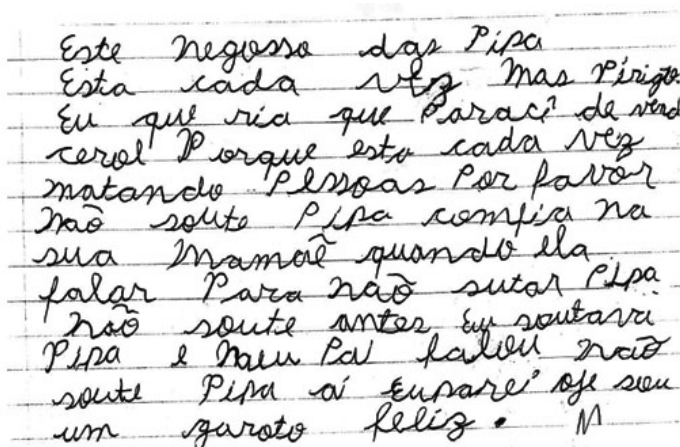 Este negosso das Pipa
Esta cada vez mas Pirigos
Eu que ria que Paraci de vend
cerol Porque esta cada vez
matando Pessoas Por favor
não soute Pipa comfia na
sua Mamãe quando ela
falar Para não sutar Pipa
não soute antes Eu soutava
Pipa e meu Pai falou não
soute Pipa aí Euparei oje sou
um garoto feliz. M